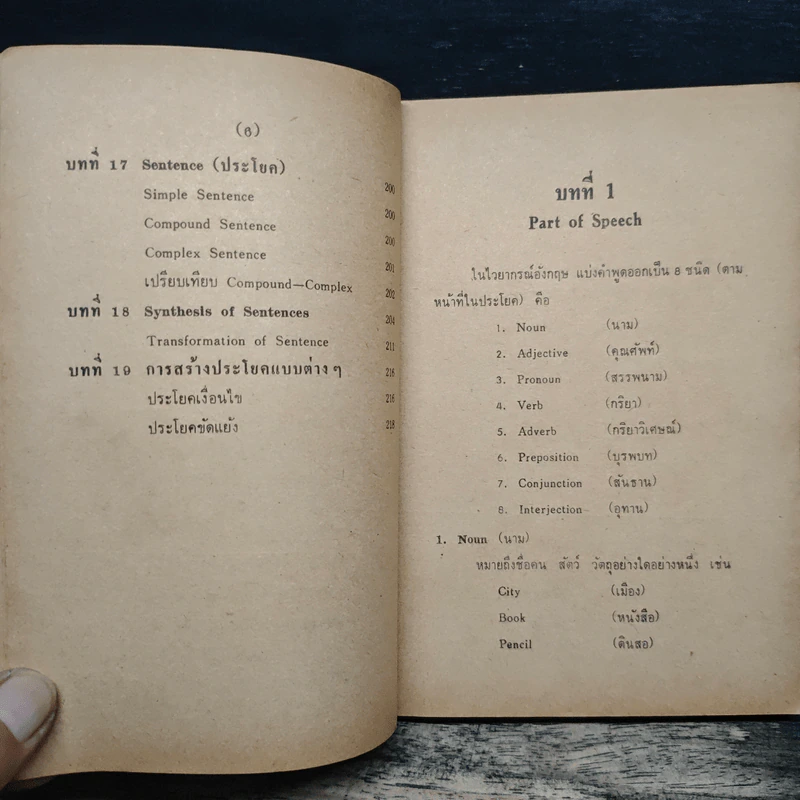 (6)
บทที่ 17 Sentence (ประโยค) 200
Simple Sentence 200
Compound Sentence 200
Complex Sentence 201
เปรียบเทียบ Compound—Complex 202
บทที่ 18 Synthesis of Sentences 204
Transformation of Sentence 211
บทที่ 19 การสร้างประโยคแบบต่าง ๆ 216
ประโยคเงื่อนไข 216
ประโยคขัดแย้ง 218
บทที่ 1
Part of Speech
ในไวยากรณ์อังกฤษ แบ่งคำพูดออกเป็น 8 ชนิด (ตาม
หน้าที่ในประโยค) คือ
1. Noun (นาม)
2. Adjective (คุณศัพท์)
3. Pronoun (สรรพนาม)
4. Verb (กริยา)
5. Adverb (กริยาวิเศษณ์)
6. Preposition (บุรพบท)
7. Conjunction (สันธาน)
8. Interjection (อุทาน)
1. Noun (นาม)
หมายถึงชื่อคน สัตว์ วัตถุอย่างใดอย่างหนึ่ง เช่น
City (เมือง)
Book (หนังสือ)
Pencil (ดินสอ)